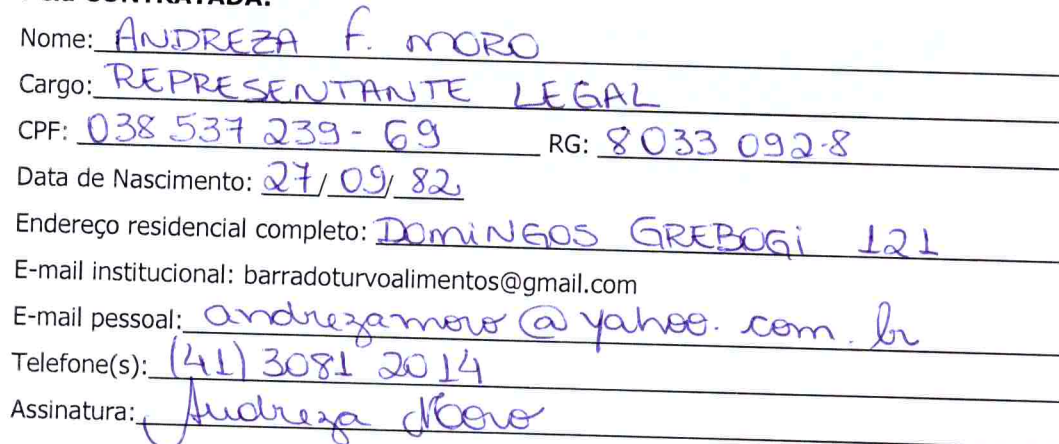 Pela CONTRATADA:
Nome: ANDREZA F. MORO
Cargo: REPRESENTANTE LEGAL
CPF: 038 537 239 - 69 RG: 8033 092-8
Data de Nascimento: 27/09/82
Endereço residencial completo: DOMINGOS GREBOGI 121
E-mail institucional: barradoturvoalimentos@gmail.com
E-mail pessoal: andrezamoro@yahoo.com.br
Telefone(s): (41) 3081 2014
Assinatura: Andreza Moro